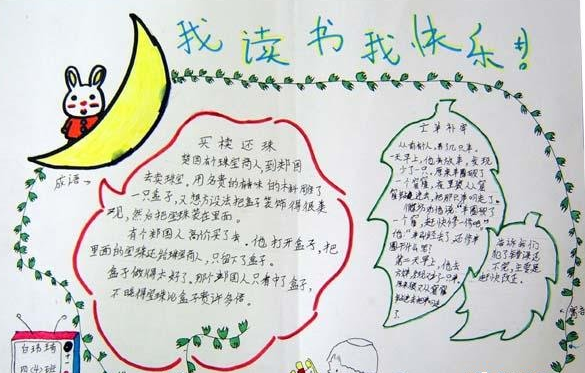 我读书我快乐!
成语→
买椟还珠
楚国有个珠宝商人,到郑国
去卖珠宝。用名贵的
一只盒子,又想方设法把盒子装饰得很美
观,然后把宝珠装在里面。
有个郑国人高价买了去。他打开盒子,把
里面的宝珠还给珠宝商人,只留下了盒子。
盒子做得太好了。那个郑国人只看中了盒子,
不晓得宝珠比盒子贵许多倍。
亡羊补牢
从前有人,养几只羊。
一天早上,他去放羊,发现
少了一只,原来羊圈破了
一个窟窿,夜里狼从窟
窿钻进去,把那只羊叼走了。
街坊劝他说"羊圈破了
一个窟窿,赶快修一修吧。"
他:"羊已经丢了,还修羊
圈干什么呢?
第二天早上,他去
告诉我们
犯了错误还
不要紧,主要是
赶快改正。
寓言
四(4)班